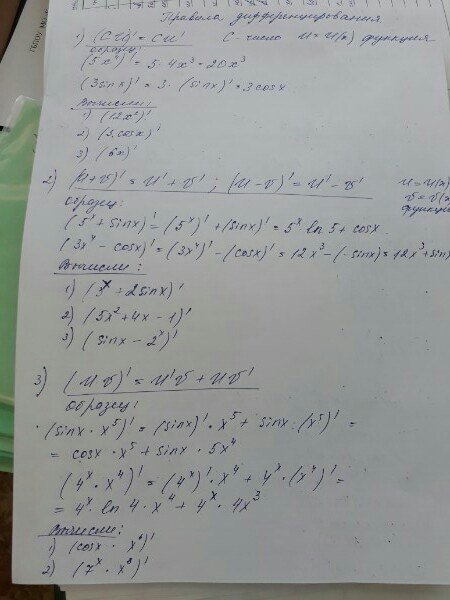 Правила дифференцирования
1) (C·U)' = CU' C - число U = U(x) функция
Образец:
(5x⁴)' = 5·4x³ = 20x³
(3sinx)' = 3·(sinx)' = 3cosx
Вычисли:
1) (12x²)'
2) (3cosx)'
3) (6x)'
2) (U+V)' = U' + V' ; (U-V)' = U' - V' U = U(x)
V = V(x)
функции
Образец:
(5ˣ+sinx)' = (5ˣ)' + (sinx)' = 5ˣ ln5 + cosx
(3x⁴ - cosx)' = (3x⁴)' - (cosx)' = 12x³ - (-sinx) = 12x³ + sin
Вычисли:
1) (3ˣ + 2sinx)'
2) (5x² + 4x - 1)'
3) (sinx - 2ˣ)'
3) (UV)' = U'V + UV'
Образец:
(sinx · x⁵)' = (sinx)' · x⁵ + sinx · (x⁵)' =
= cosx · x⁵ + sinx · 5x⁴
(4ˣ · x⁴)' = (4ˣ)' · x⁴ + 4ˣ · (x⁴)' =
= 4ˣ · ln4 · x⁴ + 4ˣ · 4x³
Вычисли:
1) (cosx ·
2) (7ˣ · x⁸)'